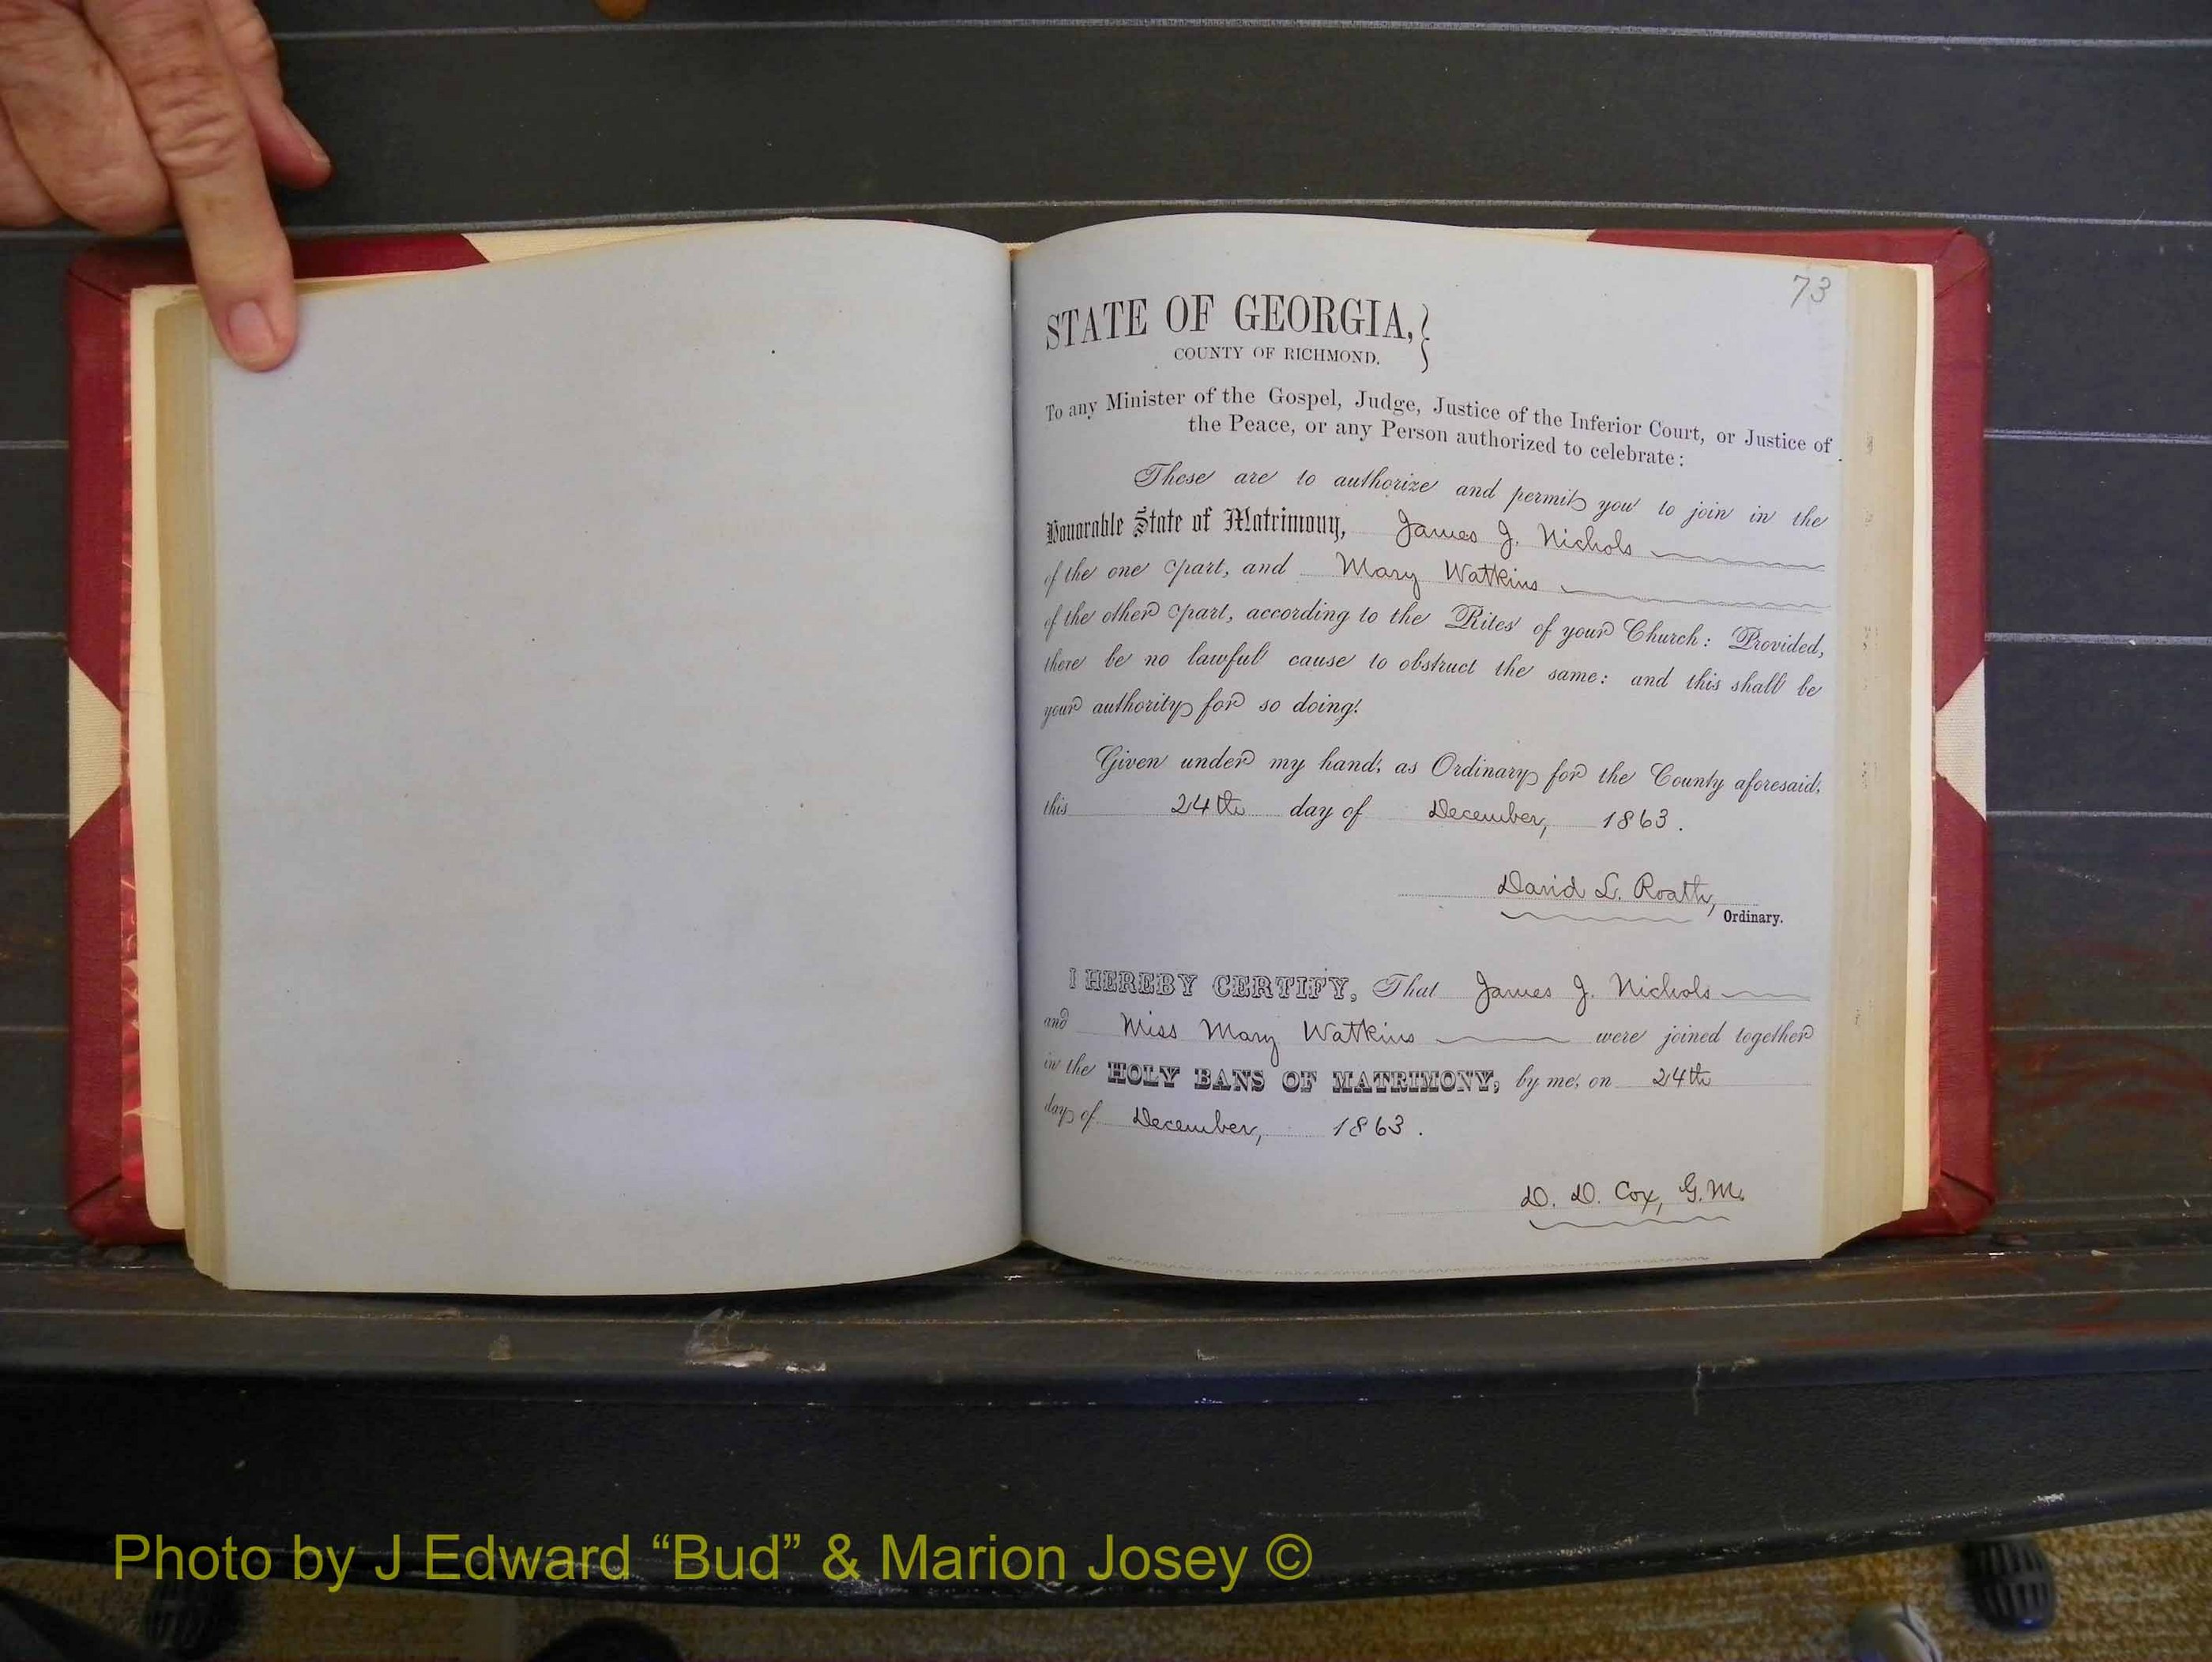 73
STATE OF GEORGIA,
COUNTY OF RICHMOND.
To any Minister of the Gospel, Judge, Justice of the Inferior Court, or Justice of
the Peace, or any Person authorized to celebrate:
These are to authorize and permit you to join in the
Honorable State of Matrimony, James J. Nichols
of the one part, and Mary Watkins
of the other part, according to the Rites of your Church: Provided,
there be no lawful cause to obstruct the same: and this shall be
your authority for so doing.
Given under my hand, as Ordinary for the County aforesaid,
this 24th day of December, 1863.
David L. Roath,
Ordinary.
I HEREBY CERTIFY, That James J. Nichols
and Miss Mary Watkins were joined together
in the HOLY BANS OF MATRIMONY, by me, on 24th
day of December, 1863.
D. D. Cox, G.M.
Photo by J Edward “Bud” & Marion Josey ©